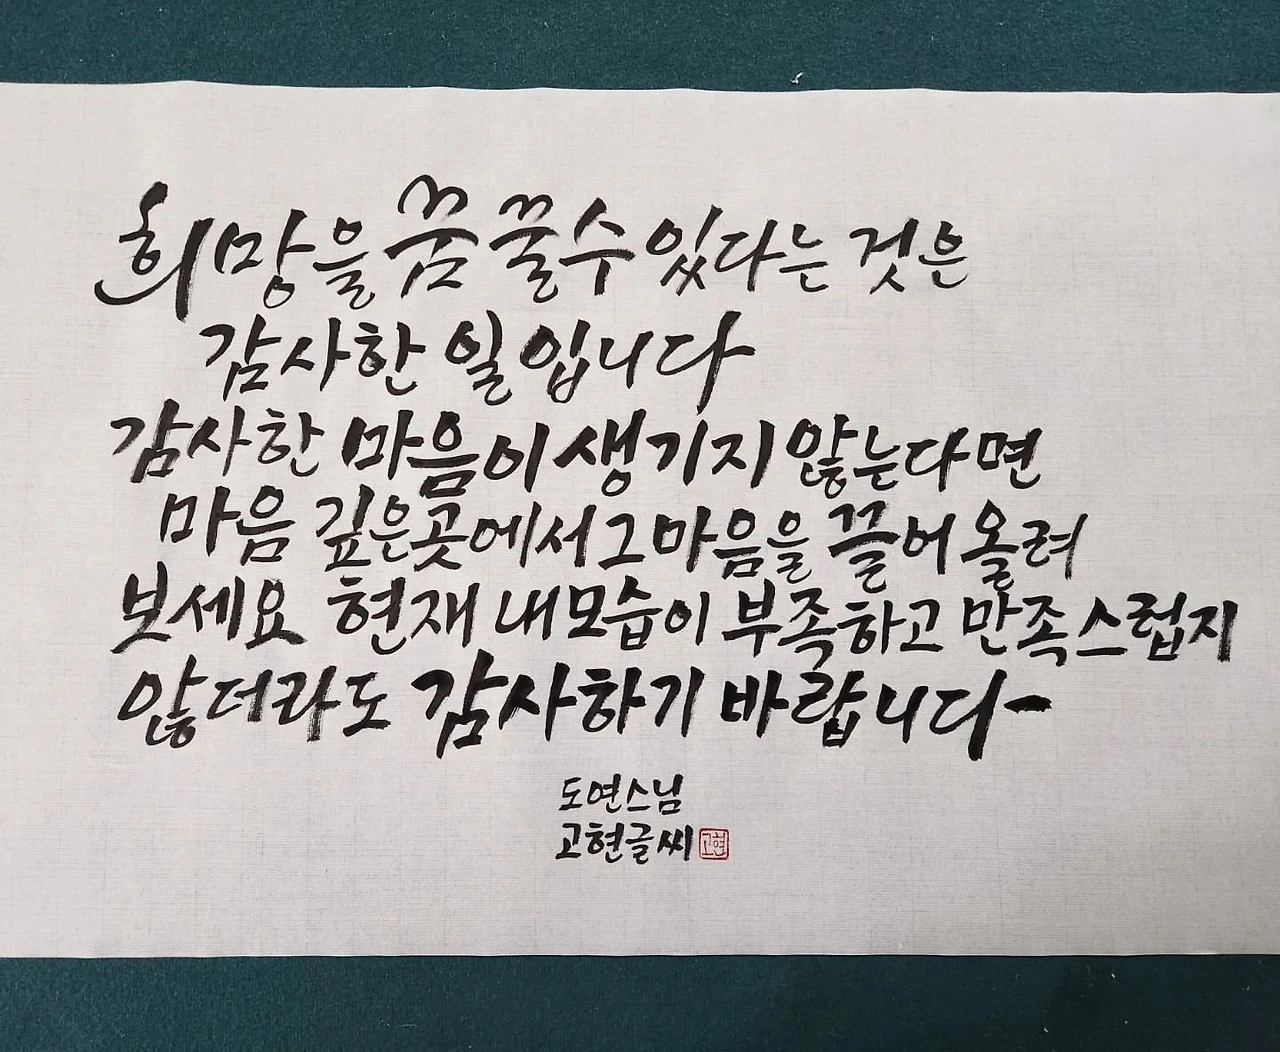 희망을 꿈꿀수 있다는 것은
감사한 일입니다
감사한 마음이 생기지 않는다면
마음 깊은곳에서 그마음을 끌어 올려
보세요 현재 내모습이 부족하고 만족스럽지
않더라도 감사하기 바랍니다
도연스님
고현글씨 고현